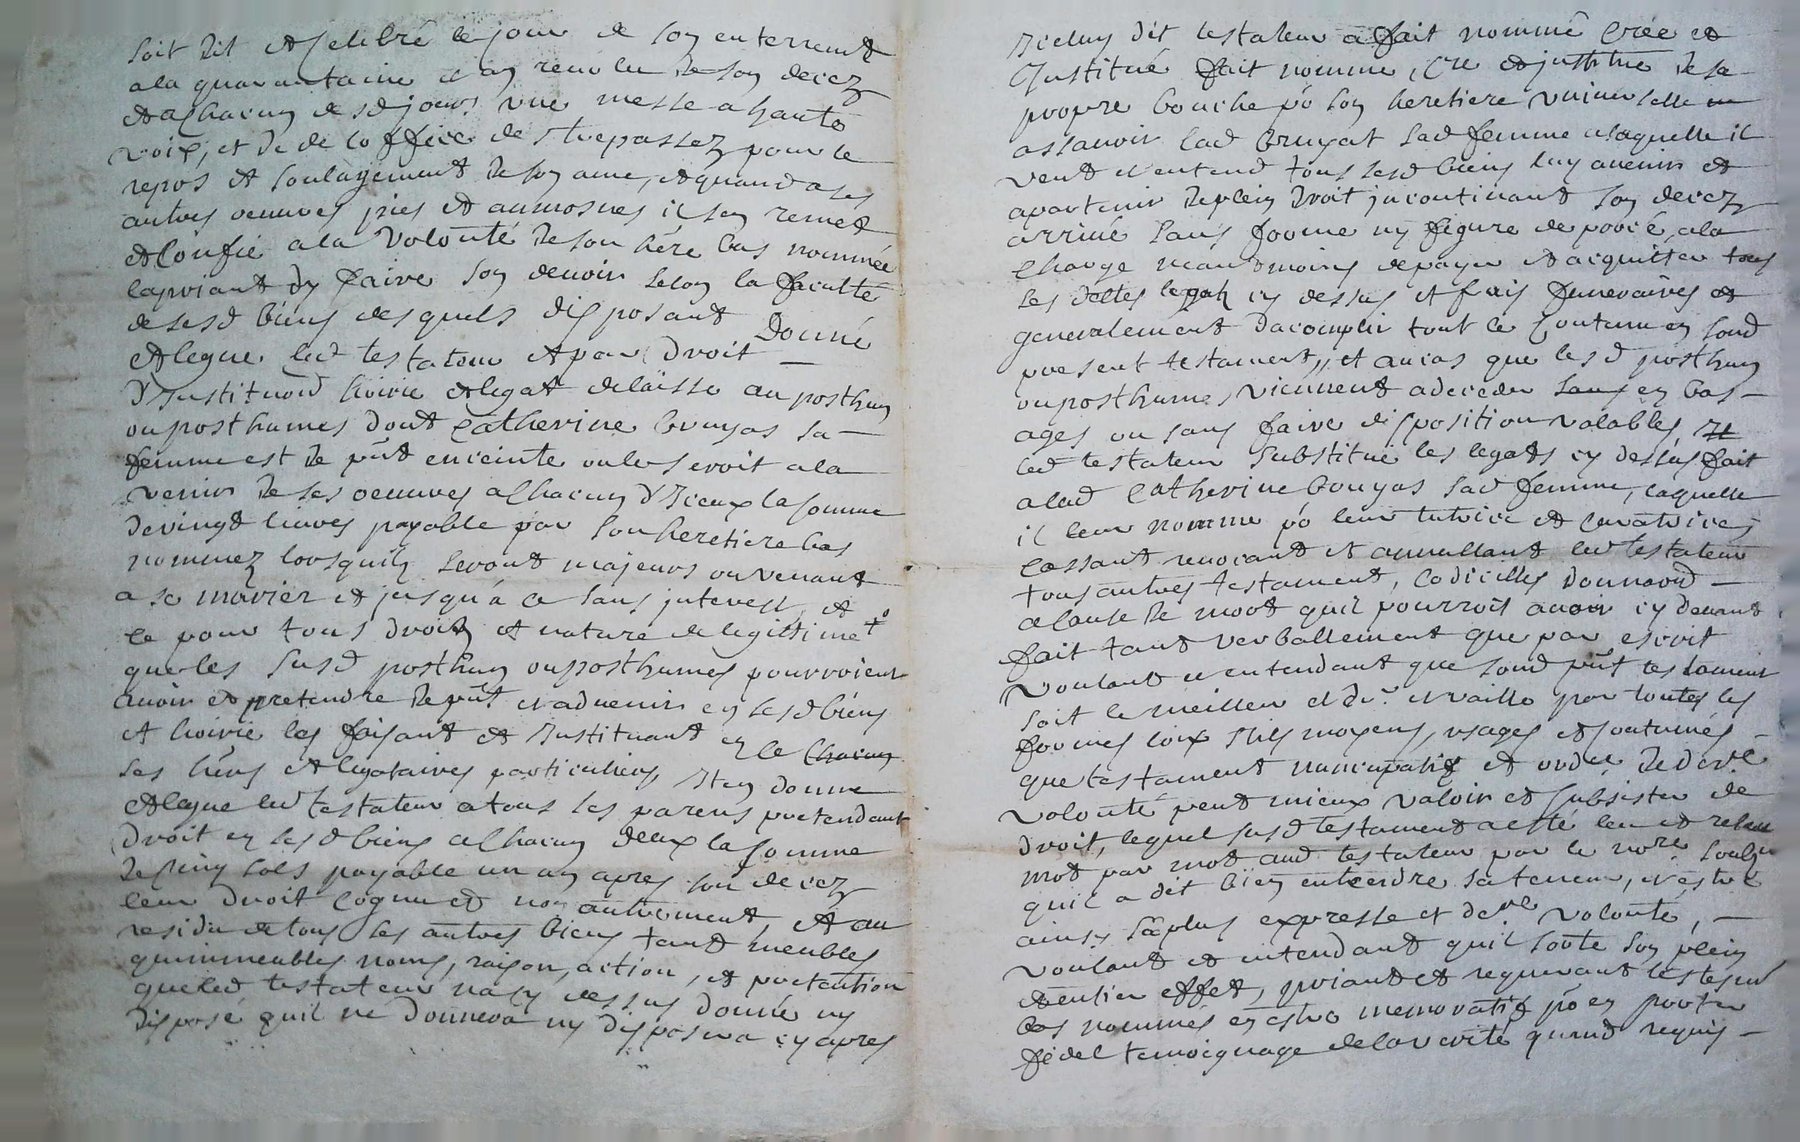 soit dit et celibré le jour de son enterremt
a la quarantaine et an revolu de son decez
et a chacun desd jours une messe a haute
voix, et de de loffice des trepassez pour le
repos et soulagement de son ame, et quand a ses
autres oeuvres pies et aumosnes il sen remet
et confie a la volonté de son here bas nommée
la priant dy faire son devoir selon la faculté
de sesd biens desquels disposant Donne
et legue led testateur et par droit
dInstitution hoirie et legat delaisse au posthum
ou posthumes dont Catherine bruyas sa
femme est de pnt enceinte ou le seroit a la
venir de ses oeuvres a chacun dIceux la somme
de vingt livres payable par son heretiere bas
nommez lorsquils seront majeurs ou venant
a se marier et jusqu'a ce sans interest, et
ce pour tous droits et nature de legittime
que les susd posthum ou posthumes pourroient
avoir et pretendre de pnt et advenir en sesd biens
et hoirie les faisant et Instituant en ce chacun
ses hers et legataires particuliers, Item donne
et legue led testateur a tous ses parens pretendant
droit en sesd biens a chacun deux la somme
de cinq sols payable un an apres son decez
leur droit cognu et non autrement, et au
residu de tous ses autres biens tant meubles
quimmeubles noms, raison, action, et pretention
que led testateur na cy dessus donné ny
disposé quil ne donnera ny disposera cy apres
Iceluy dit testateur a fait nommé créé et
Institué fait nomme, cre et institue de sa
propre bouche po son heretiere universelle
assavoir lad bruyat sad femme a laquelle il
veut et entend tous sesd biens luy avenir et
apartenir de plein droit incontinant son decez
arrivé sans forme ny figure de procé, a la
charge neantmoins de payer et acquitter tous
ses dettes legatz cy dessus et frais funeraires et
generalement dacomplir tout le contenu en sond
present testament, et au cas que lesd posthum
ou posthumes viennent a deceder sans en bas
ages ou sans faire disposition valables
led testateur substitue les legats cy dessus fait
a lad Catherine bouyas sad femme, laquelle
il leur nomme po leur tutrice et curatrice
cassant revocant et annullant led testateur
tous autres testament, codicilles donnaond
a cause de mort quil pourroit avoir cy devant
fait tant verballement que par escrit
voulant et entendant que sond pnt testament
soit le meilleur et dr. et vaille par toutes les
formes loix stils moyens, usages et coutumes
que testament nuncupatif et ordce de derre
volonté peut mieux valoir et subsister de
droit, lequel susd testament a esté leu et releu
mot par mot aud testateur par le nore soubz
quil a dit bien entendre sa teneur, et estre
ainsy sa plus expresse et derre volonté,
voulant et entendant quil sorte son plein
et entier effet, priant et requerant les tesm
bas nommés en estre memoratif po en porter
fidel temoignage de la verité quand requis